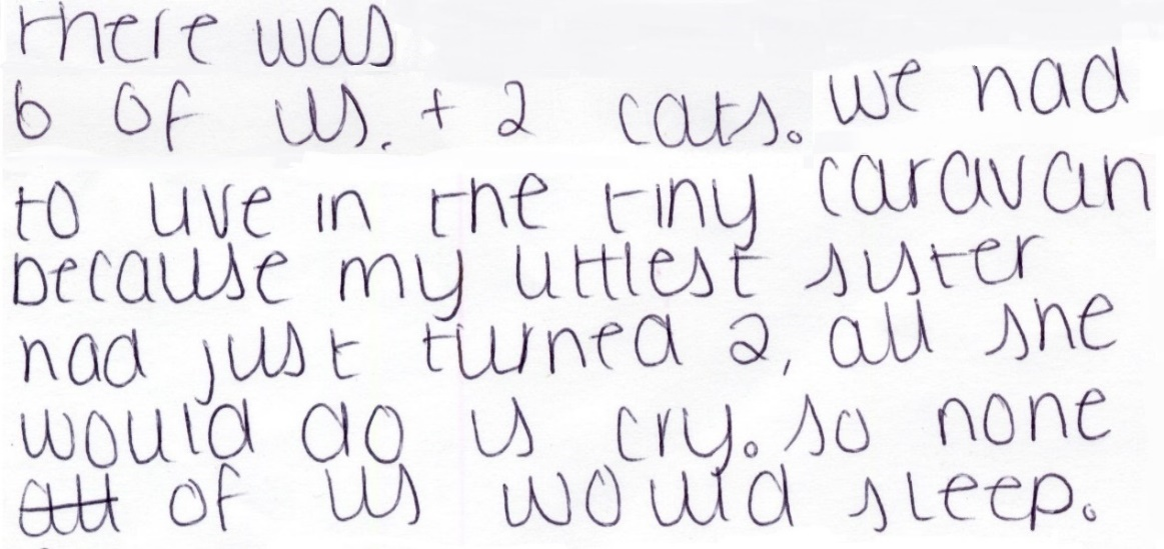 there was
6 of us. + 2 cats. we had
to live in the tiny caravan
because my littlest sister
had just turned 2, all she
would do is cry. so none
all of us would sleep.